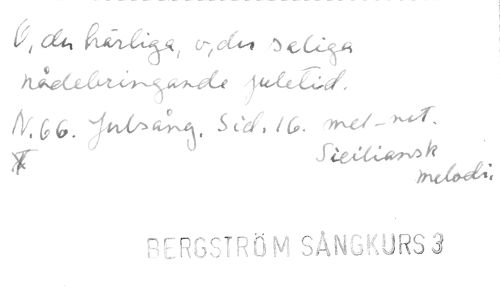 O, du härliga, o, du saliga
nådebringande juletid.
N. 66. Julsång. Sid. 16. mel-not.
Siciliansk
melodi.
BERGSTRÖM SÅNGKURS 3